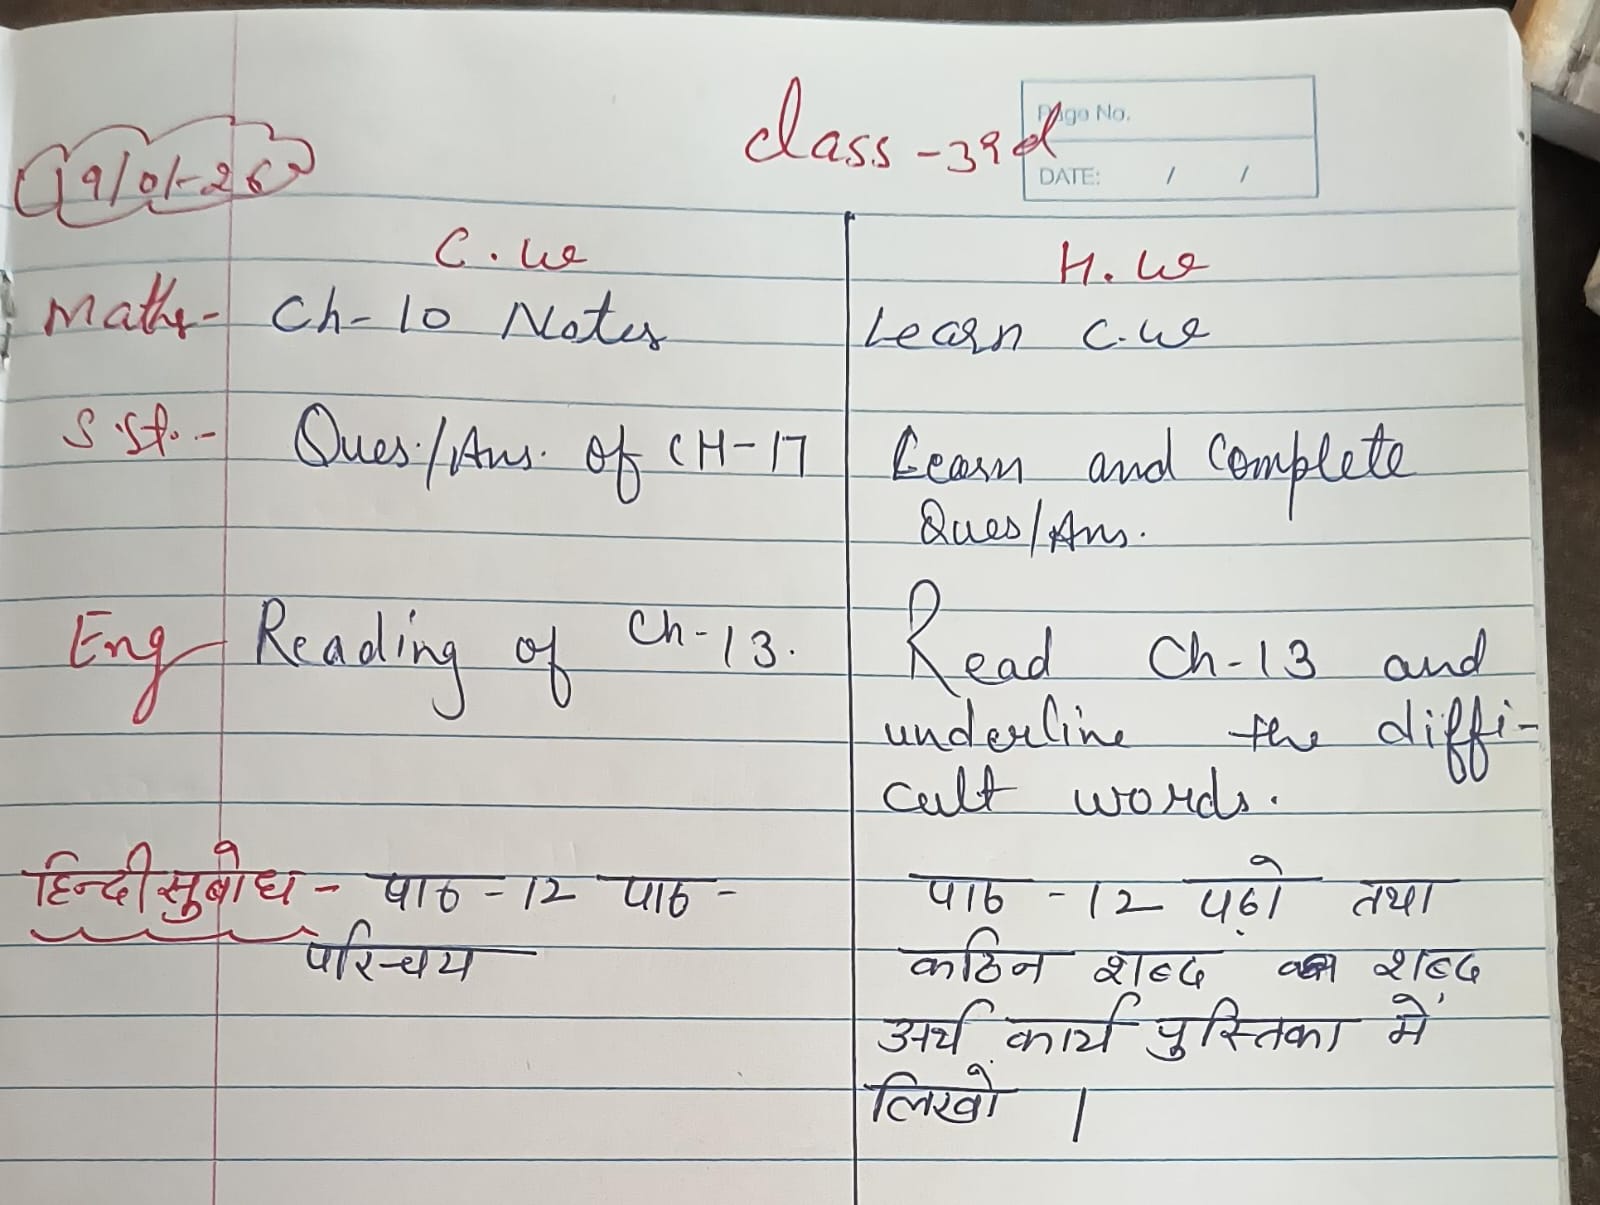 class - 3rd
Page No.
DATE: / /
19/01-26
C.w
H.w
Maths- Ch-10 Notes
Learn C.w
S.st.- Ques./Ans. of CH-17
Learn and Complete
Ques/Ans.
Eng- Reading of Ch-13.
Read Ch-13 and
underline the diffi-
cult words.
हिन्दी सुबोध - पाठ -12 पाठ -
परिचय
पाठ -12 पढ़ो तथा
कठिन शब्द शब्द
अर्थ कार्य पुस्तिका में
लिखो |